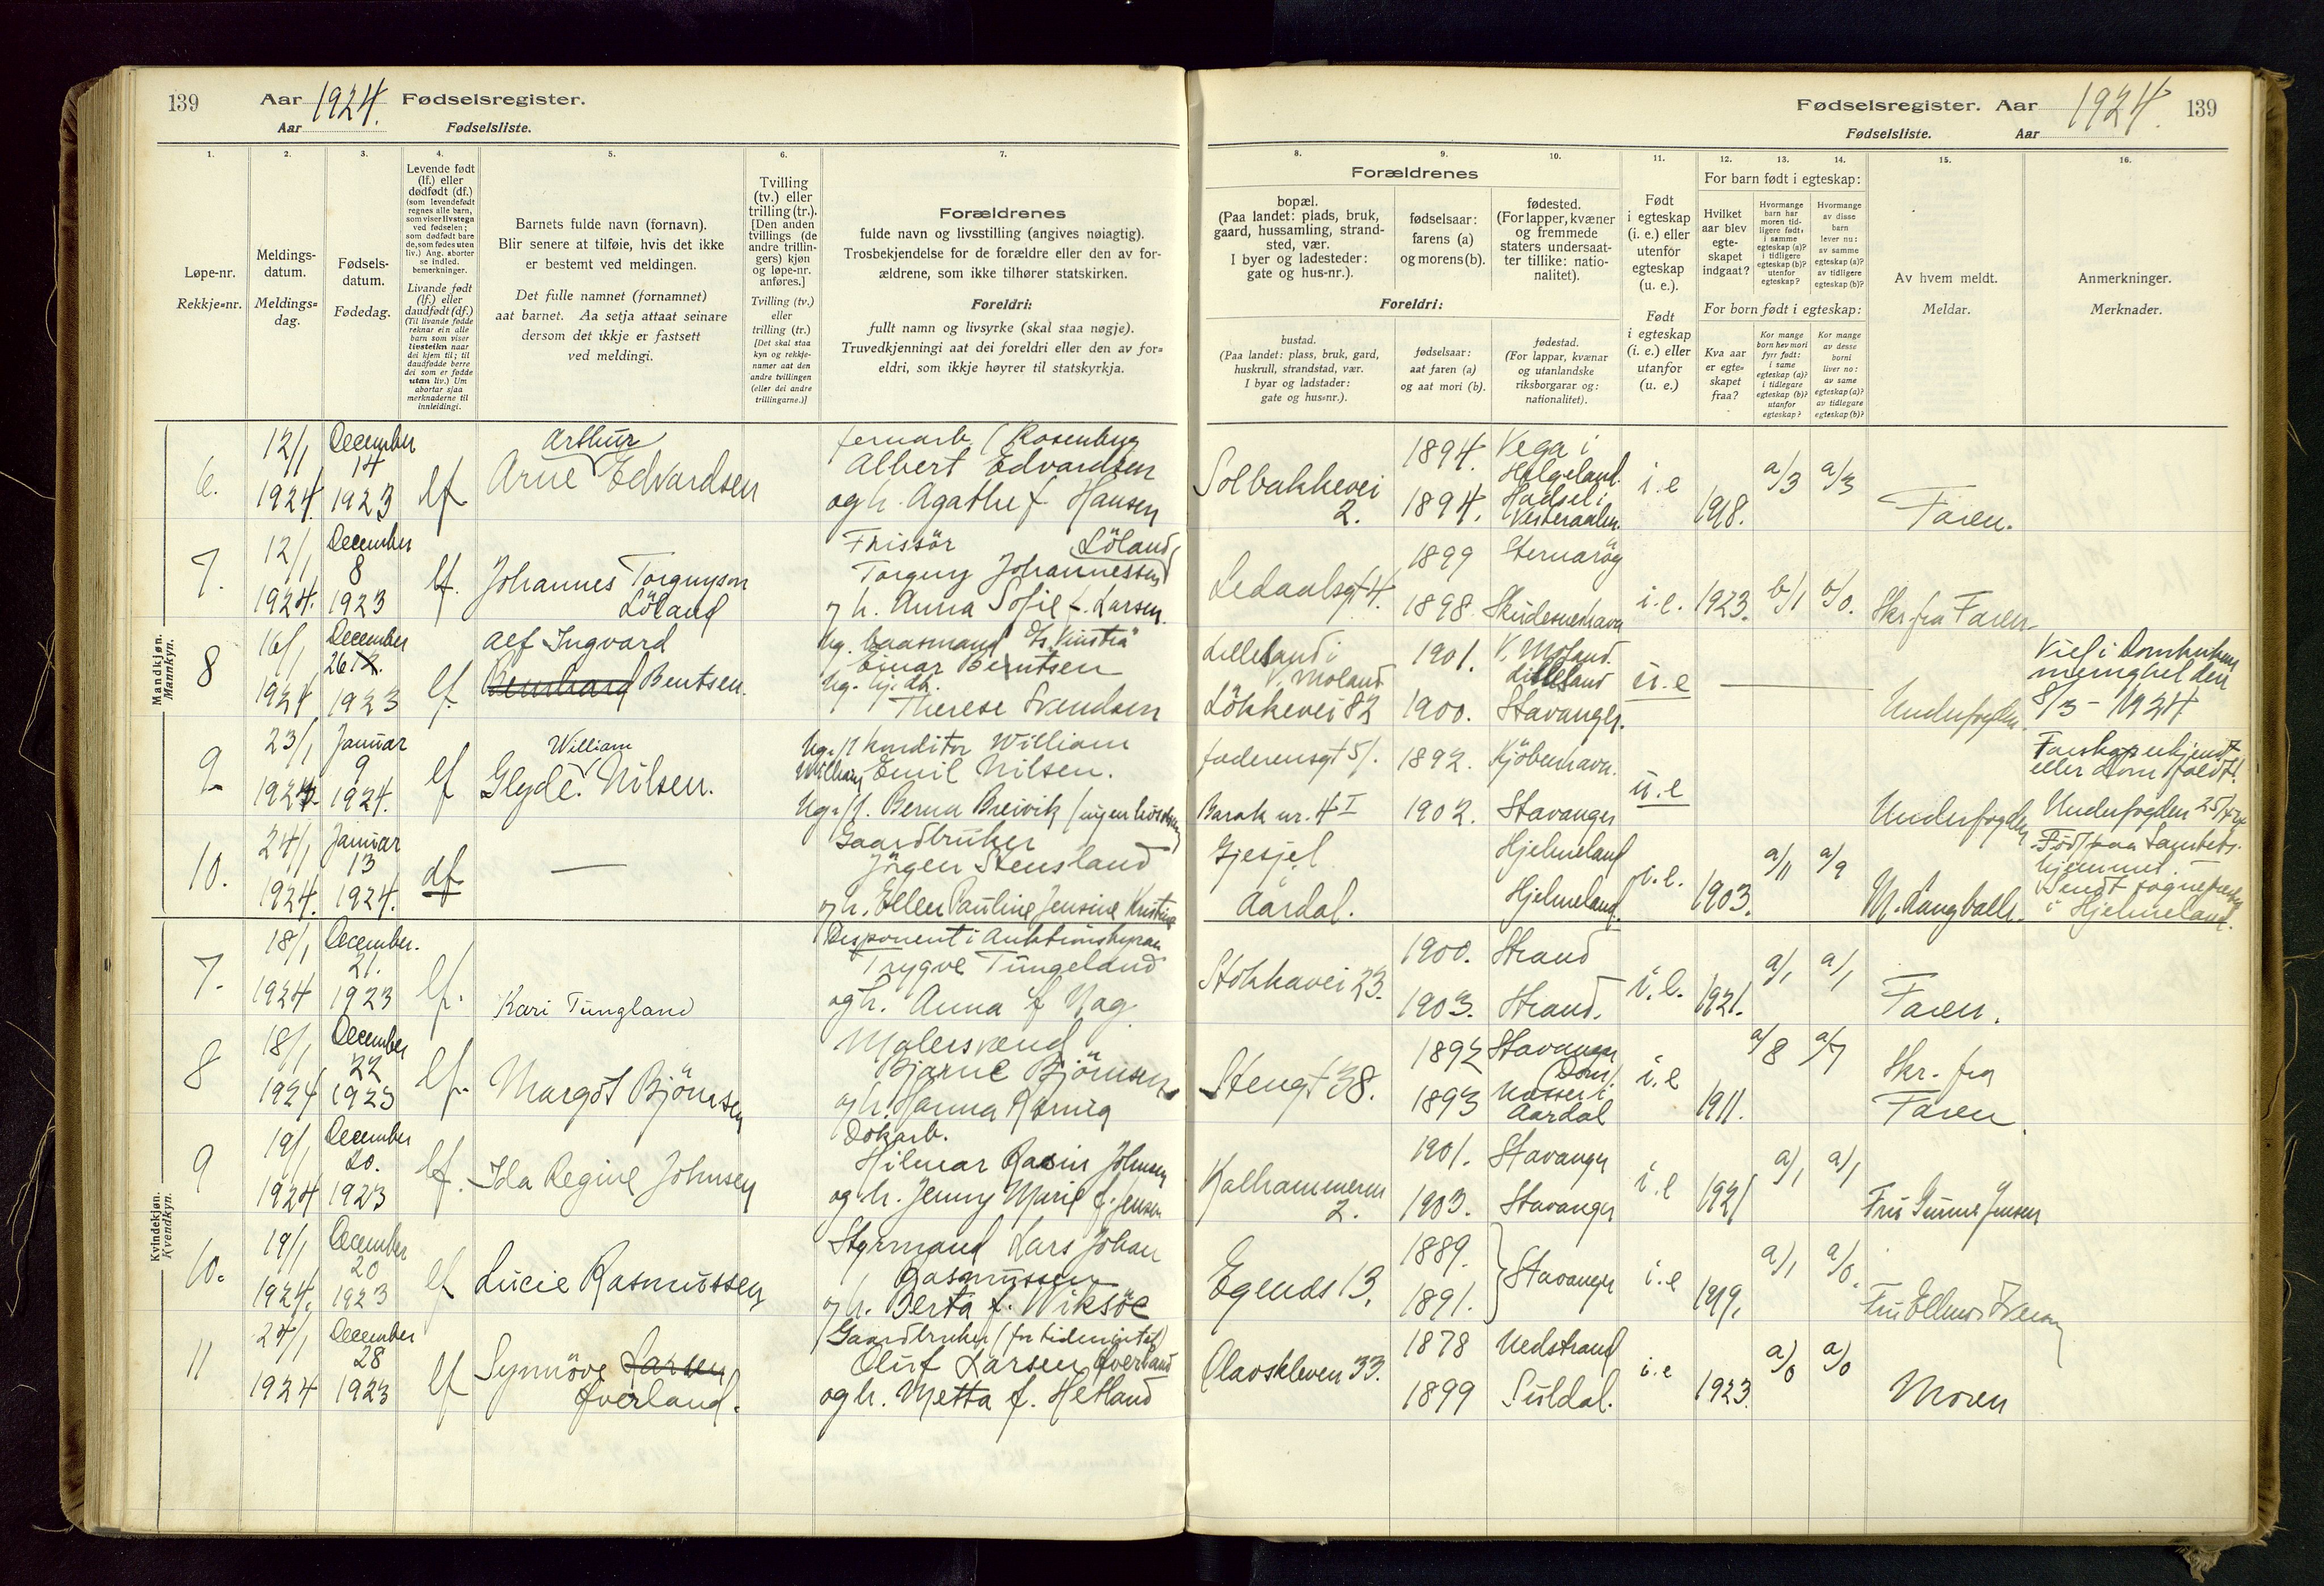 139 Aar 1924. Fødselsregister.
Aar Fødselsliste.
1. 2. 3. 4. 5. 6. 7.
Løpe-nr.
Rekkje-nr.
Meldings-
datum.
Meldings-
dag.
Fødsels-
datum.
Fødedag.
Levende født
(lf.) eller
dødfødt (df.)
(som levendefødt
regnes alle barn,
som viser livstegn
ved fødselen;
som dødfødt bare
de, som fødes uten
liv.) Ang. aborter
se indled.
bemerkninger.
Livande født
(lf.) eller
daudfødt (df.)
(Til livande fødde
reknar ein alle
barn som viser
livsteikn naar
dei kjem til; til
daudfødde berre
dei som er fødde
utan liv.) Um
abortar sjaa
merknaderne til
innleidingi.
Barnets fulde navn (fornavn).
Blir senere at tilføie, hvis det ikke
er bestemt ved meldingen.
Det fulle namnet (fornamnet)
aat barnet. Aa setja attaat seinare
dersom det ikkje er fastsett
ved meldingi.
Tvilling
(tv.) eller
trilling (tr.).
[Den anden
tvillings (de
andre trillin-
gers) kjøn
og løpe-nr.
anføres.]
Tvilling (tv.)
eller
trilling (tr.)
[Det skal staa
kyn og rekkje-
namer aat den
andre tvillingen
(eller dei andre
trillingarne.)]
Forældrenes
fulde navn og livsstilling (angives nøiagtig).
Trosbekjendelse for de forældre eller den av for-
ældrene, som ikke tilhører statskirken.
Foreldri:
fullt namn og livsyrke (skal staa nøgje).
Truvedkjenningi aat dei foreldri eller den av for-
eldri, som ikkje høyrer til statskyrkja.
Mandkjøn.
Mannkyn.
6. 12/1 1924. December 14 1923 lf Arne Arthur Edvardsen
jernarb. (Rosenberg
Albert Edvardsen
og h. Agathe f. Hansen
7. 12/1 1924. December 8 1923 lf. Johannes Torgnyson
Löland
Frissör Löland
Torgny Johannessen
og h. Anna Sofie f. Larsen.
8 16/1 1924 December 26 12. 1923 lf. Alf Ingvard
Bernhard Bentsen.
Ug. baasmand
Einar Berntsen
Ug. tj. dt.
Therese Svendsen
9. 23/1 1924 Januar 9 1924. lf Glyde William Nilsen.
Ug. konditor William
Emil Nilsen.
Ug. Berna Breivik
10. 24/1 1924. Januar 13 1924. df —
Gaardbruker
Jörgen Stensland
og h. Ellen Pauline Jensine Kristine
Kvindekjøn.
Kvendkyn.
7. 18/1 1924 December. 21. 1923 lf. Kari Tungland
Disponent i
Trygve Tungeland
og h. Anna f. Hag
8 18/1 1924 December 22 1923 lf. Margot Björnsen
Malersvend
Bjarne Björnsen
og h. Hanna
9 19/1 1924 December 20. 1923 lf. Ida Regine Johnsen
Dokarb.
Hilmar Johnsen
og h. Jenny Marie f. Jensen
10. 19/1 1924. December 20 1923 lf Lucie Rasmussen
Styrmand Lars Johan
Rasmussen
og h. Berta f. Wiksöe
11 24/1 1924 December 28 1923 lf Synnöve Larsen
Øverland.
Gaardbruker (for tiden intet)
Oluf Larsen Øverland
og h. Metta f. Hetland
Fødselsregister. Aar 1924. 139
Fødselsliste. Aar
8. 9. 10. 11. 12. 13. 14. 15. 16.
Forældrenes
bopæl.
(Paa landet: plads, bruk,
gaard, hussamling, strand-
sted, vær.
I byer og ladesteder:
gate og hus-nr.).
fødselsaar:
farens (a)
og morens (b).
fødested.
(For lapper, kvæner
og fremmede
staters undersaat-
ter tillike: natio-
nalitet).
Foreldri:
bustad.
(Paa landet: plass, bruk, gard,
huskrull, strandstad, vær.
I byar og ladstader:
gate og hus-nr.).
fødselsaar:
aat faren (a)
og aat mori (b).
fødestad.
(For lappar, kvænar
og utanlandske
riksborgarar og:
nationalitet).
Født
i egteskap
(i. e.) eller
utenfor
egteskap
(u. e.).
Født
i egteskap
(i. e.) eller
utanfor
(u. e.)
For barn født i egteskap:
Hvilket
aar blev
egte-
skapet
indgaat?
Hvormange
barn har
moren tid-
ligere født:
i samme
egteskap (a)?
i tidligere
egteskap (b)?
utenfor
egteskap?
Hvormange
av disse
barn
lever nu:
av samme
egteskap (a)?
av tidligere
egteskap (b)?
For born født i egteskap:
Kva aar
er egte-
skapet
fraa?
Kor mange
born hev mori
fyrr født:
i same
egteskap (a)?
i tidlegare
egteskap (b)?
utanfor
egteskap?
Kor mange
av desse
borni
liver no:
av same
egteskap (a)?
av tidlegare
egteskap (b)?
Av hvem meldt.
Meldar.
Anmerkninger.
Merknader.
Solbakkevei
2.
1894. Vega i
Helgeland.
1894. Hadsel i
Vesteraalen.
i.e 1918. a/3 a/3 Faren.
Ledaalsgt 4.
1899 Sternarög
1898. Skudeneshavn
i.e. 1923. b/1 b/0. Skr. fra Faren.
Lillesand i
V. Moland
1901. V. Moland.
Lillesand
Lökkevei 82 1900. Stavanger.
u.e — Underfogden.
Viet i Domkirkens
menighet den
8/3 - 1924
1892. Kjöbenhavn.
u.e
Barak nr. 4 I 1902. Stavanger
Underfogden
Farskap erkjendt
eller dom faldt!
Underfogden
Gjesjel
Aardal.
Hjelmeland
Hjelmeland.
i.e. 1903. a/11 a/9 M. Langballe.
Hjemmet.
Sendt sognepresten
i Hjelmeland.
Stokkavei 23.
1900. Strand
1903. Strand.
i.e. 1921. a/1 a/1 Faren.
Stengt 38.
1892 Stavanger
(Dom).
1893
Aardal
i.e 1911. a/8 a/7 Skr. fra
Faren.
Kalhammeren
2.
1901. Stavanger
1903. Stavanger
i.e 1921 a/1 a/1 Fru Jensen
Egenes 13.
1889.
1891. Stavanger
i.e 1919. a/1 a/0.
Olavskleven 33.
1878 Nedstrand
1899 Suldal.
i.e 1923. a/0 a/0 Moren